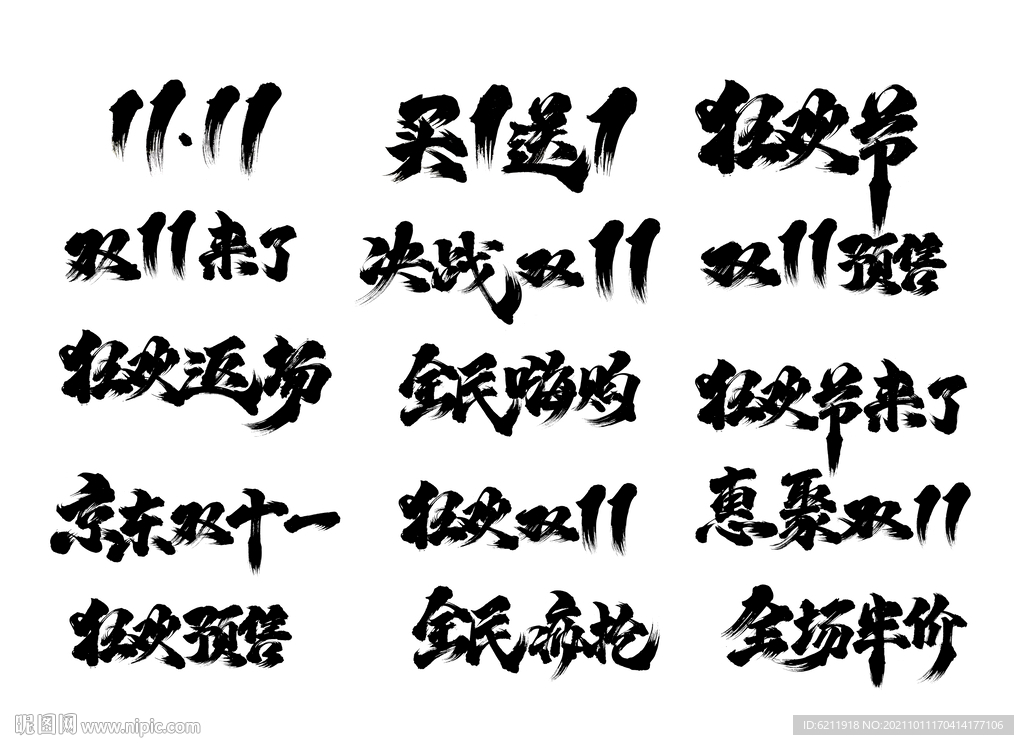 11.11
买1送1
狂欢节
双11来了
决战双11
双11预售
狂欢返场
全民嗨购
狂欢节来了
京东双十一
狂欢双11
惠聚双11
狂欢预售
全民疯抢
全场半价
昵图网 www.nipic.com
ID:6211918 NO:20211011170414177106